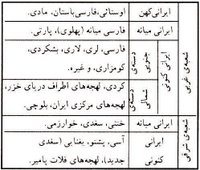 شعبه‌ی غربی
ایرانی‌کهن
اوستائی، فارسی‌باستان، مادی.
ایرانی میانه
فارسی میانه (پهلوی)، پارتی.
ایرانی کنونی
دسته‌ی جنوبی
فارسی، لری، لاری، بشکردی،
کومزاری، و غیره.
دسته‌ی شمالی
کردی، لهجه‌های اطراف دریای خزر،
لهجه‌های مرکزی ایران، بلوچی.
شعبه‌ی شرقی
ایرانی میانه
ختنی، سغدی، خوارزمی.
ایرانی
کنونی
آسی، پشتو، یغنابی (سغدی
جدید)، لهجه‌های فلات پامیر.